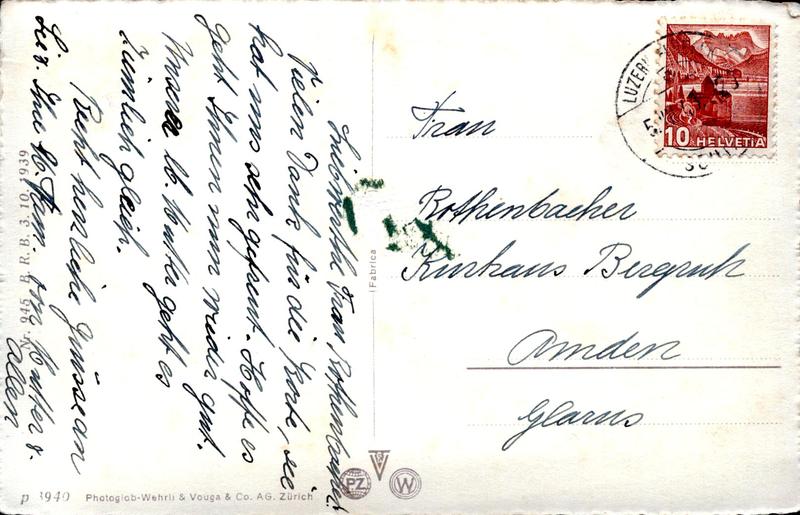 Liebwerthe Frau Rothenbacher!
Vielen Dank für die Karte, sie
hat uns sehr gefreut. Hoffe es
geht Ihnen nun wieder gut.
Unserer lb. Mutter geht es
ziemlich gleich.
Recht herzliche Grüsse an
Sie &. Ihre lb. von Mutter &.
Allen
Nr. 945 B. R. B. 3. 10. 1939
p 3940 Photoglob-Wehrli & Vouga & Co. AG. Zürich
Fabrica
PZ
W
LUZERN
10 HELVETIA
Frau
Rothenbacher
Kurhaus Bergruh
Amden
Glarus